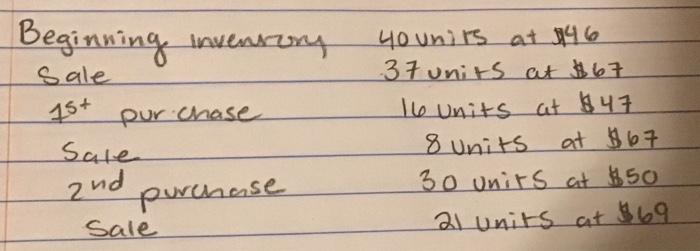 Beginning inventory 40 units at $46
Sale 37 units at $67
1st purchase 16 units at $47
Sale 8 units at $67
2nd purchase 30 units at $50
Sale 21 units at $69